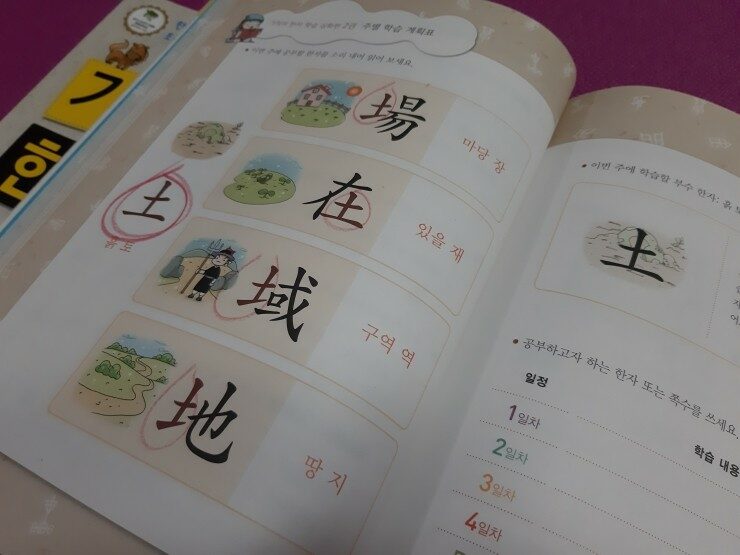 주별 학습 계획표
이번 주에 공부할 한자를 소리 내어 읽어 보세요.
場
마당 장
在
있을 재
土
흙 토
域
구역 역
地
땅 지
이번 주에 학습할 부수 한자: 흙
土
공부하고자 하는 한자 또는 쪽수를 쓰세요.
일정
학습 내용
1일차
2일차
3일차
4일차